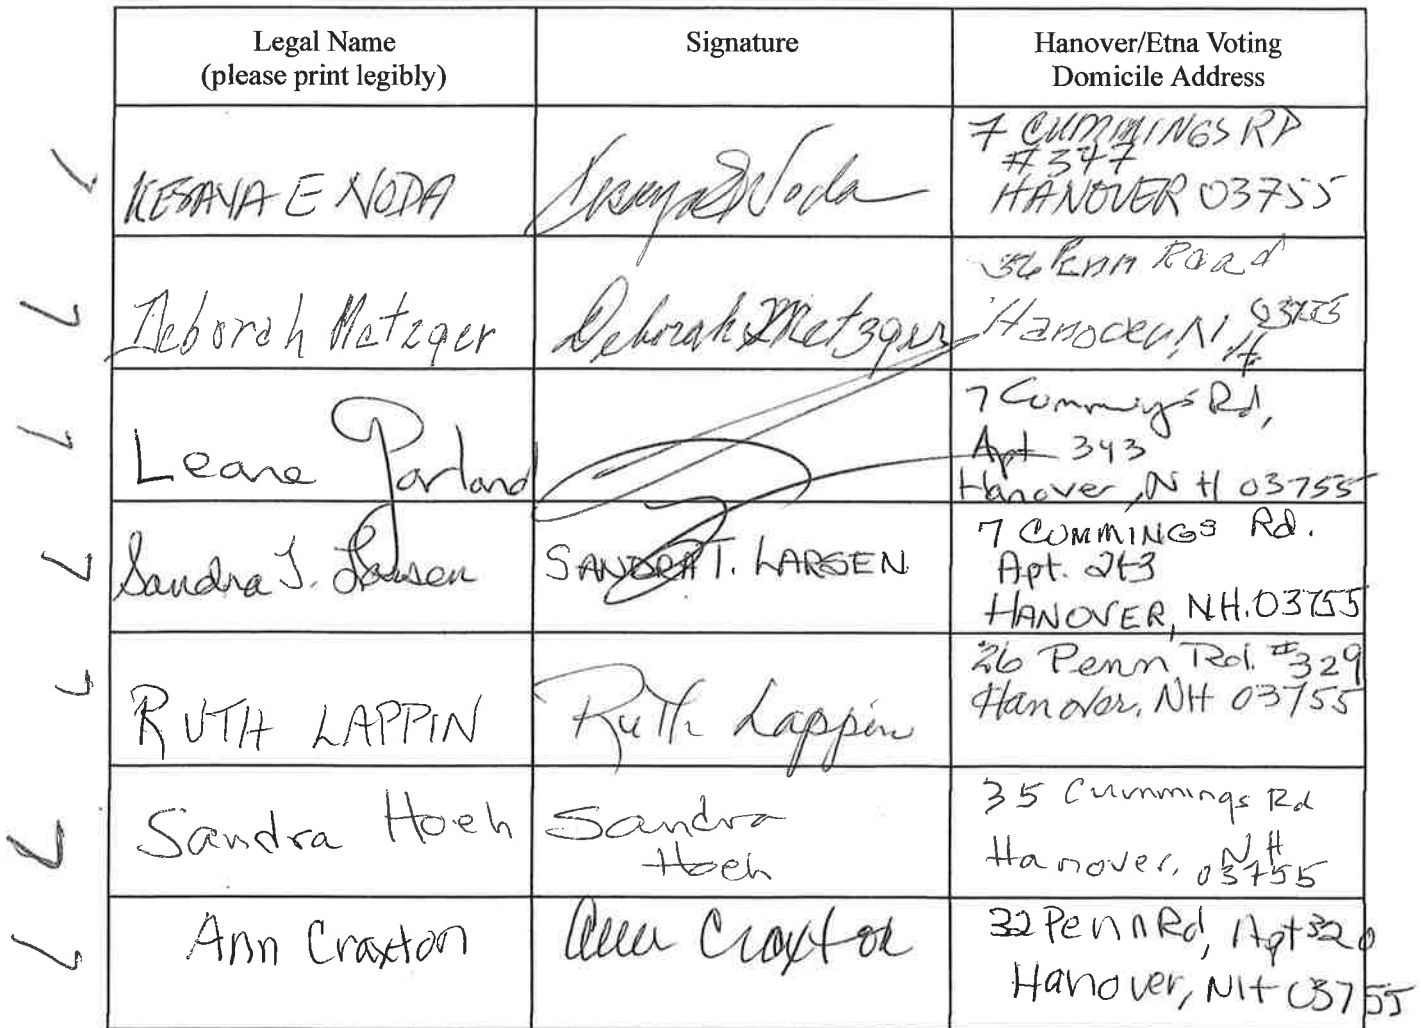 Legal Name
(please print legibly)
Signature
Hanover/Etna Voting
Domicile Address
KESAYA E NODA
Kesaya E Noda
7 CUMMINGS RD
#347
HANOVER 03755
Deborah Metzger
Deborah Metzger
36 Penn Road
Hanover, NH 03755
Leane Parland
7 Cummings Rd,
Apt 343
Hanover, NH 03755
Sandra T. Larsen
SANDRA T. LARSEN
7 CUMMINGS Rd.
Apt. 243
HANOVER, NH. 03755
RUTH LAPPIN
Ruth Lappin
26 Penn Rd. #329
Hanover, NH 03755
Sandra Hoeh
Sandra
Hoeh
35 Cummings Rd
Hanover, NH
03755
Ann Craxton
Ann Craxton
32 Penn Rd, Apt 320
Hanover, NH 03755